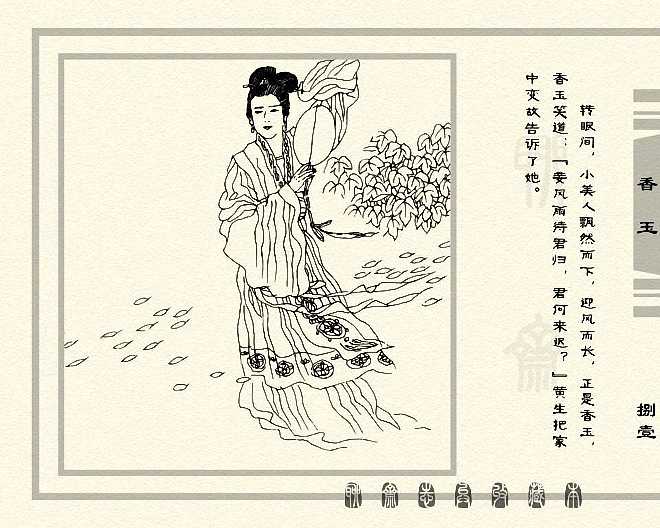 转眼间，小美人飘然而下，迎风而长，正是香玉，
香玉笑道：『妾风雨待君归，君何来迟？』黄生把家
中变故告诉了她。
香玉
捌壹